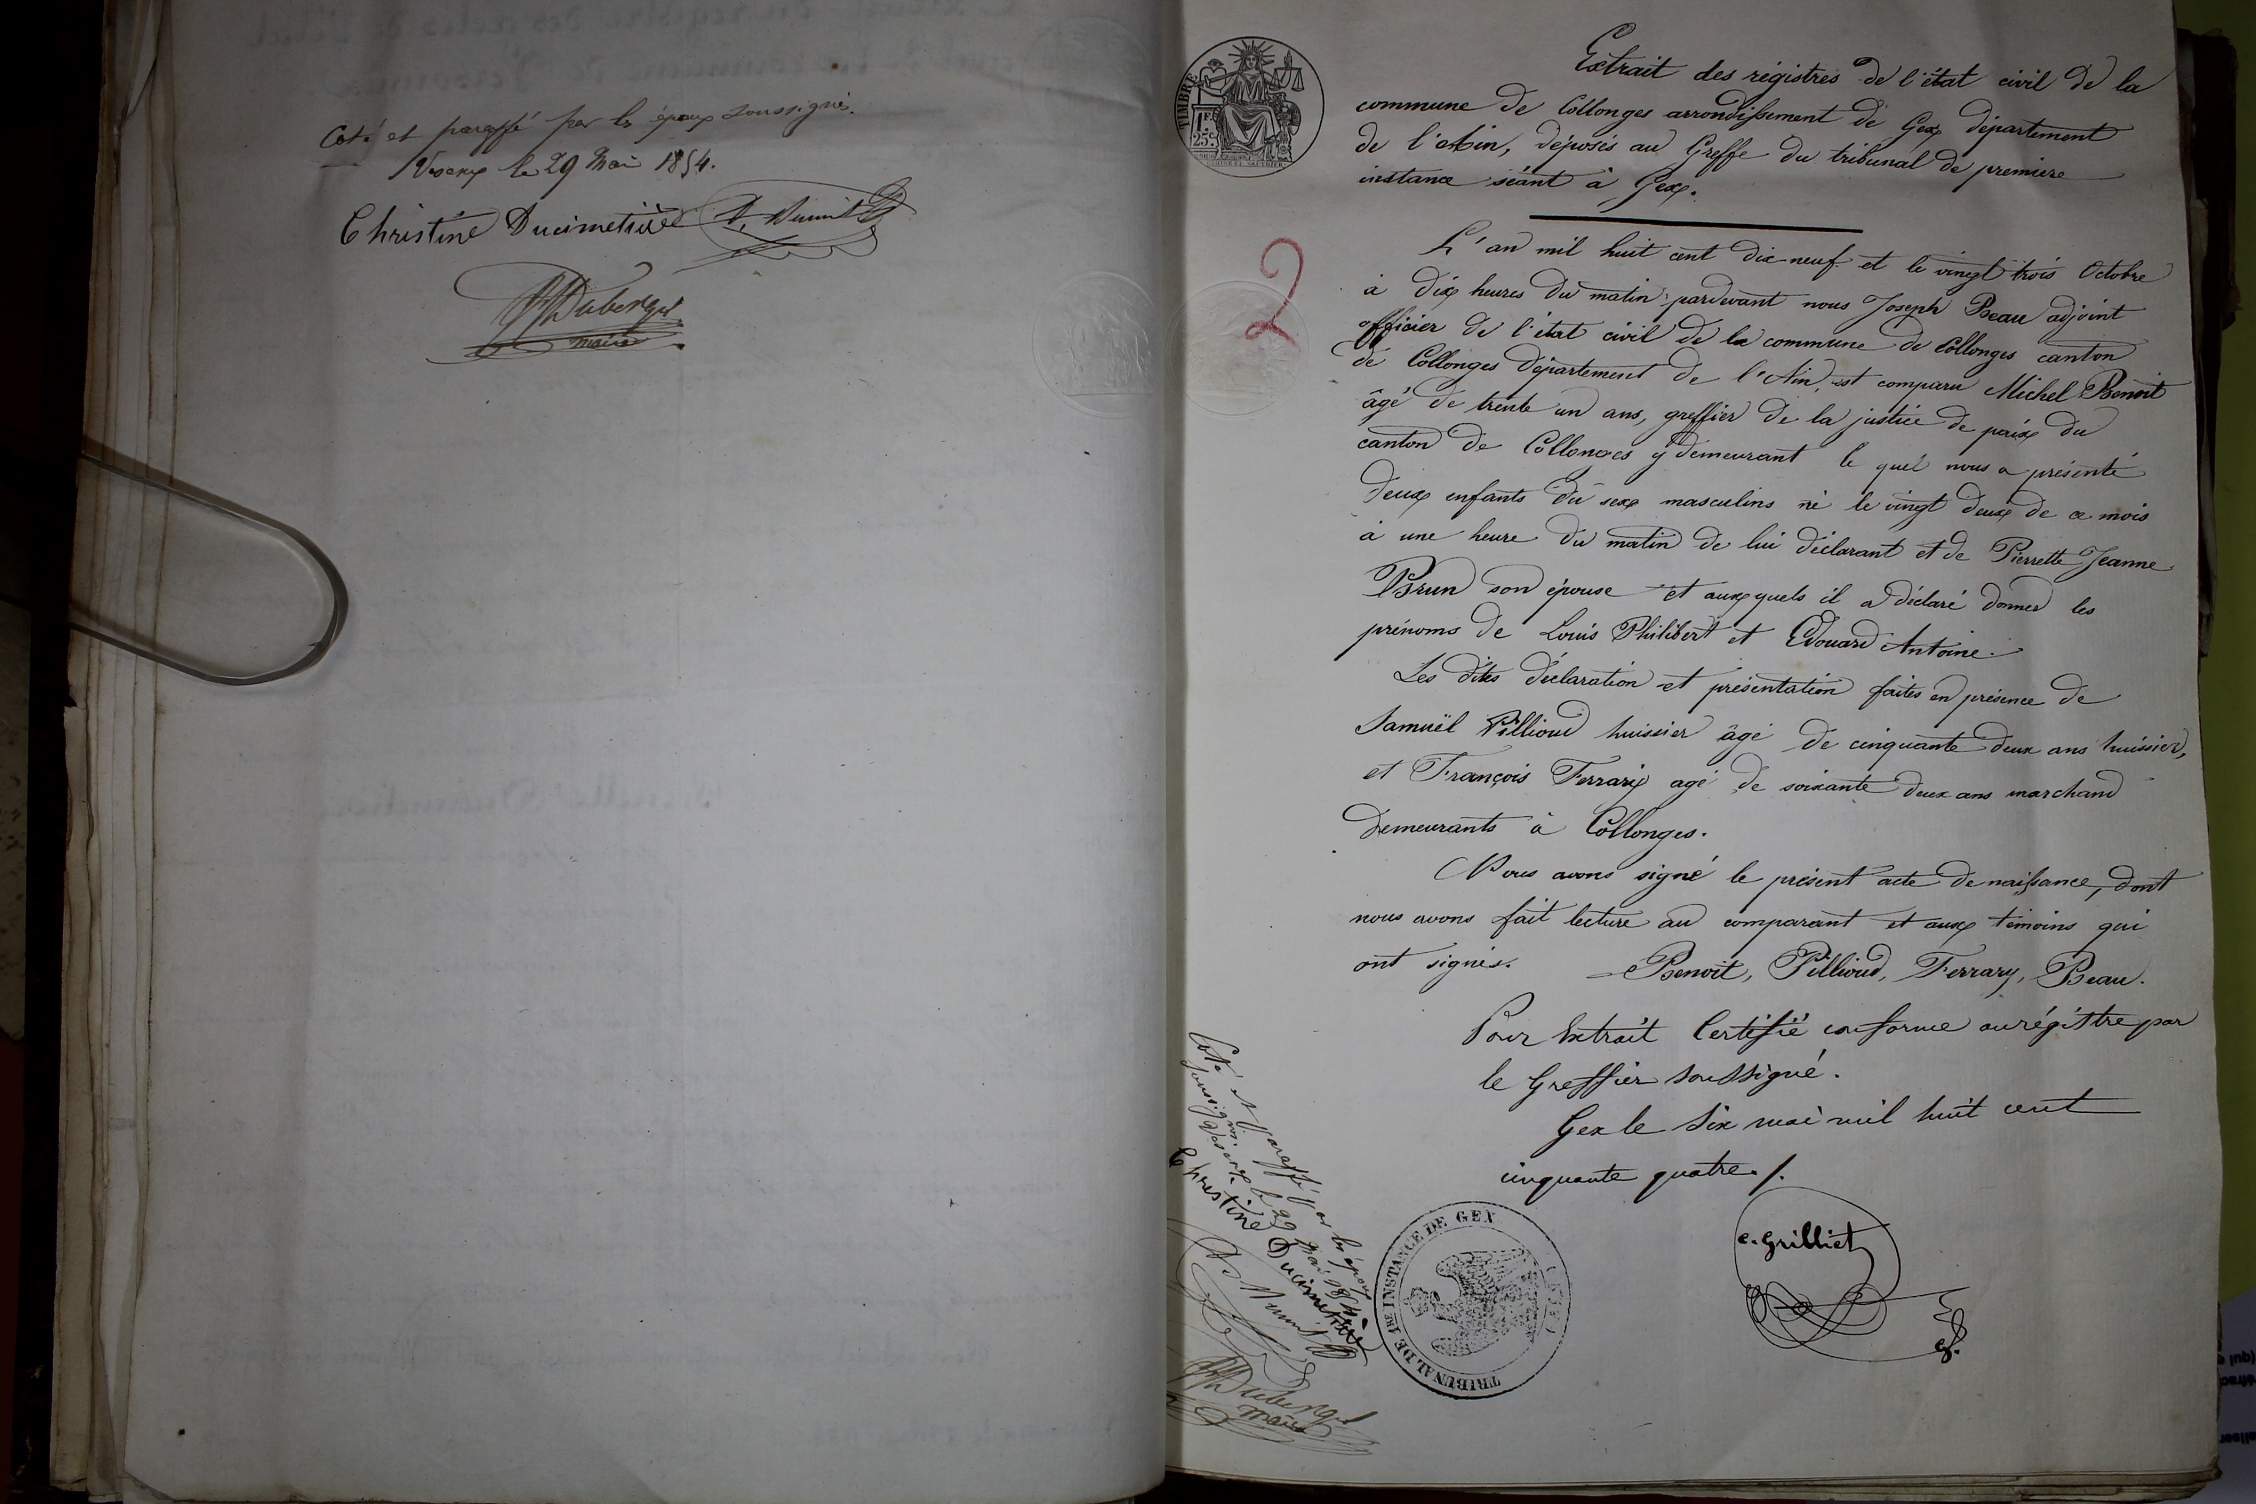 Coté et paraffé par les époux soussignés.
Vesenex le 29 Mai 1854.
Christine Ducimetière
Duberger
maire
TIMBRE
1F.
25c.
Extrait des régistres de l'état civil de la
commune de Collonges arrondissement de Gex département
de l'Ain, déposés au Greffe du tribunal de première
instance séant à Gex.
2
L'an mil huit cent dix neuf et le vingt trois Octobre
à dix heures du matin pardevant nous Joseph Beau adjoint
officier de l'état civil de la commune de Collonges canton
de Collonges département de l'Ain, est comparu Michel Benoit
âgé de trente un ans, greffier de la justice de paix du
canton de Collonges y demeurant le quel nous a présenté
deux enfants du sexe masculins né le vingt deux de ce mois
à une heure du matin de lui déclarant et de Pierrette Jeanne
Brun son épouse et auxquels il a déclaré donner les
prénoms de Louis Philibert et Edouard Antoine.
Les dites déclaration et présentation faites en présence de
Samuël Pillioud huissier âgé de cinquante deux ans huissier,
et François Ferrarix agé de soixante deux ans marchand
demeurants à Collonges.
Nous avons signé le présent acte de naissance, dont
nous avons fait lecture au comparant et aux témoins qui
ont signés. Benoit, Pillioud, Ferrary, Beau.
Pour Extrait Certifié conforme au régistre par
le Greffier soussigné.
Gex le six mai mil huit cent
cinquante quatre./.
e. Grilliet
Coté et paraffé par les époux
soussignés. Vesenex le 29 Mai 1854.
Christine Ducimetière
Duberger
maire
TRIBUNAL DE 1RE INSTANCE DE GEX